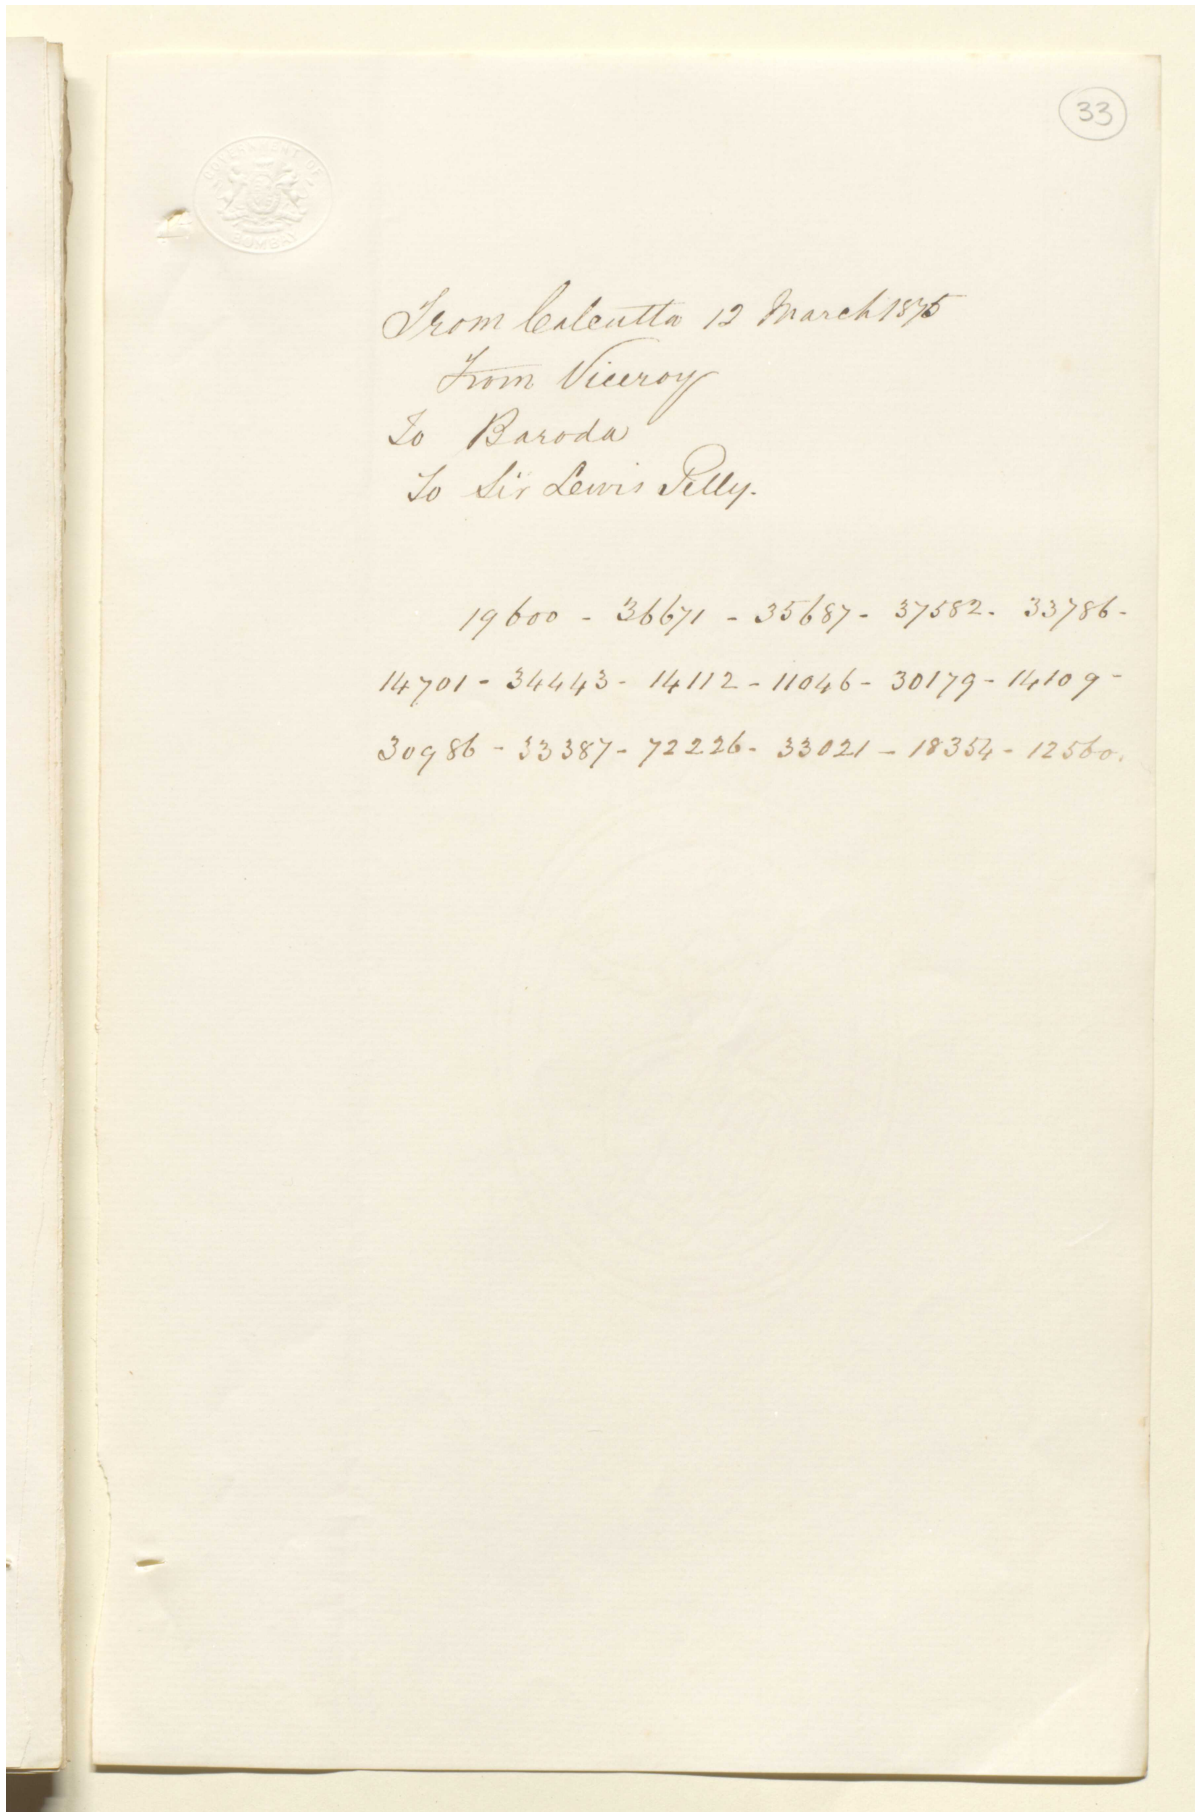 33
GOVERNMENT OF
BOMBAY
From Calcutta 12 March 1875
From Viceroy
To Baroda
To Sir Lewis Pelly.
19600 - 36671 - 35687 - 37582 - 33786 -
14701 - 34443 - 14112 - 11046 - 30179 - 14109 -
30986 - 33387 - 72226 - 33021 - 18354 - 12560.